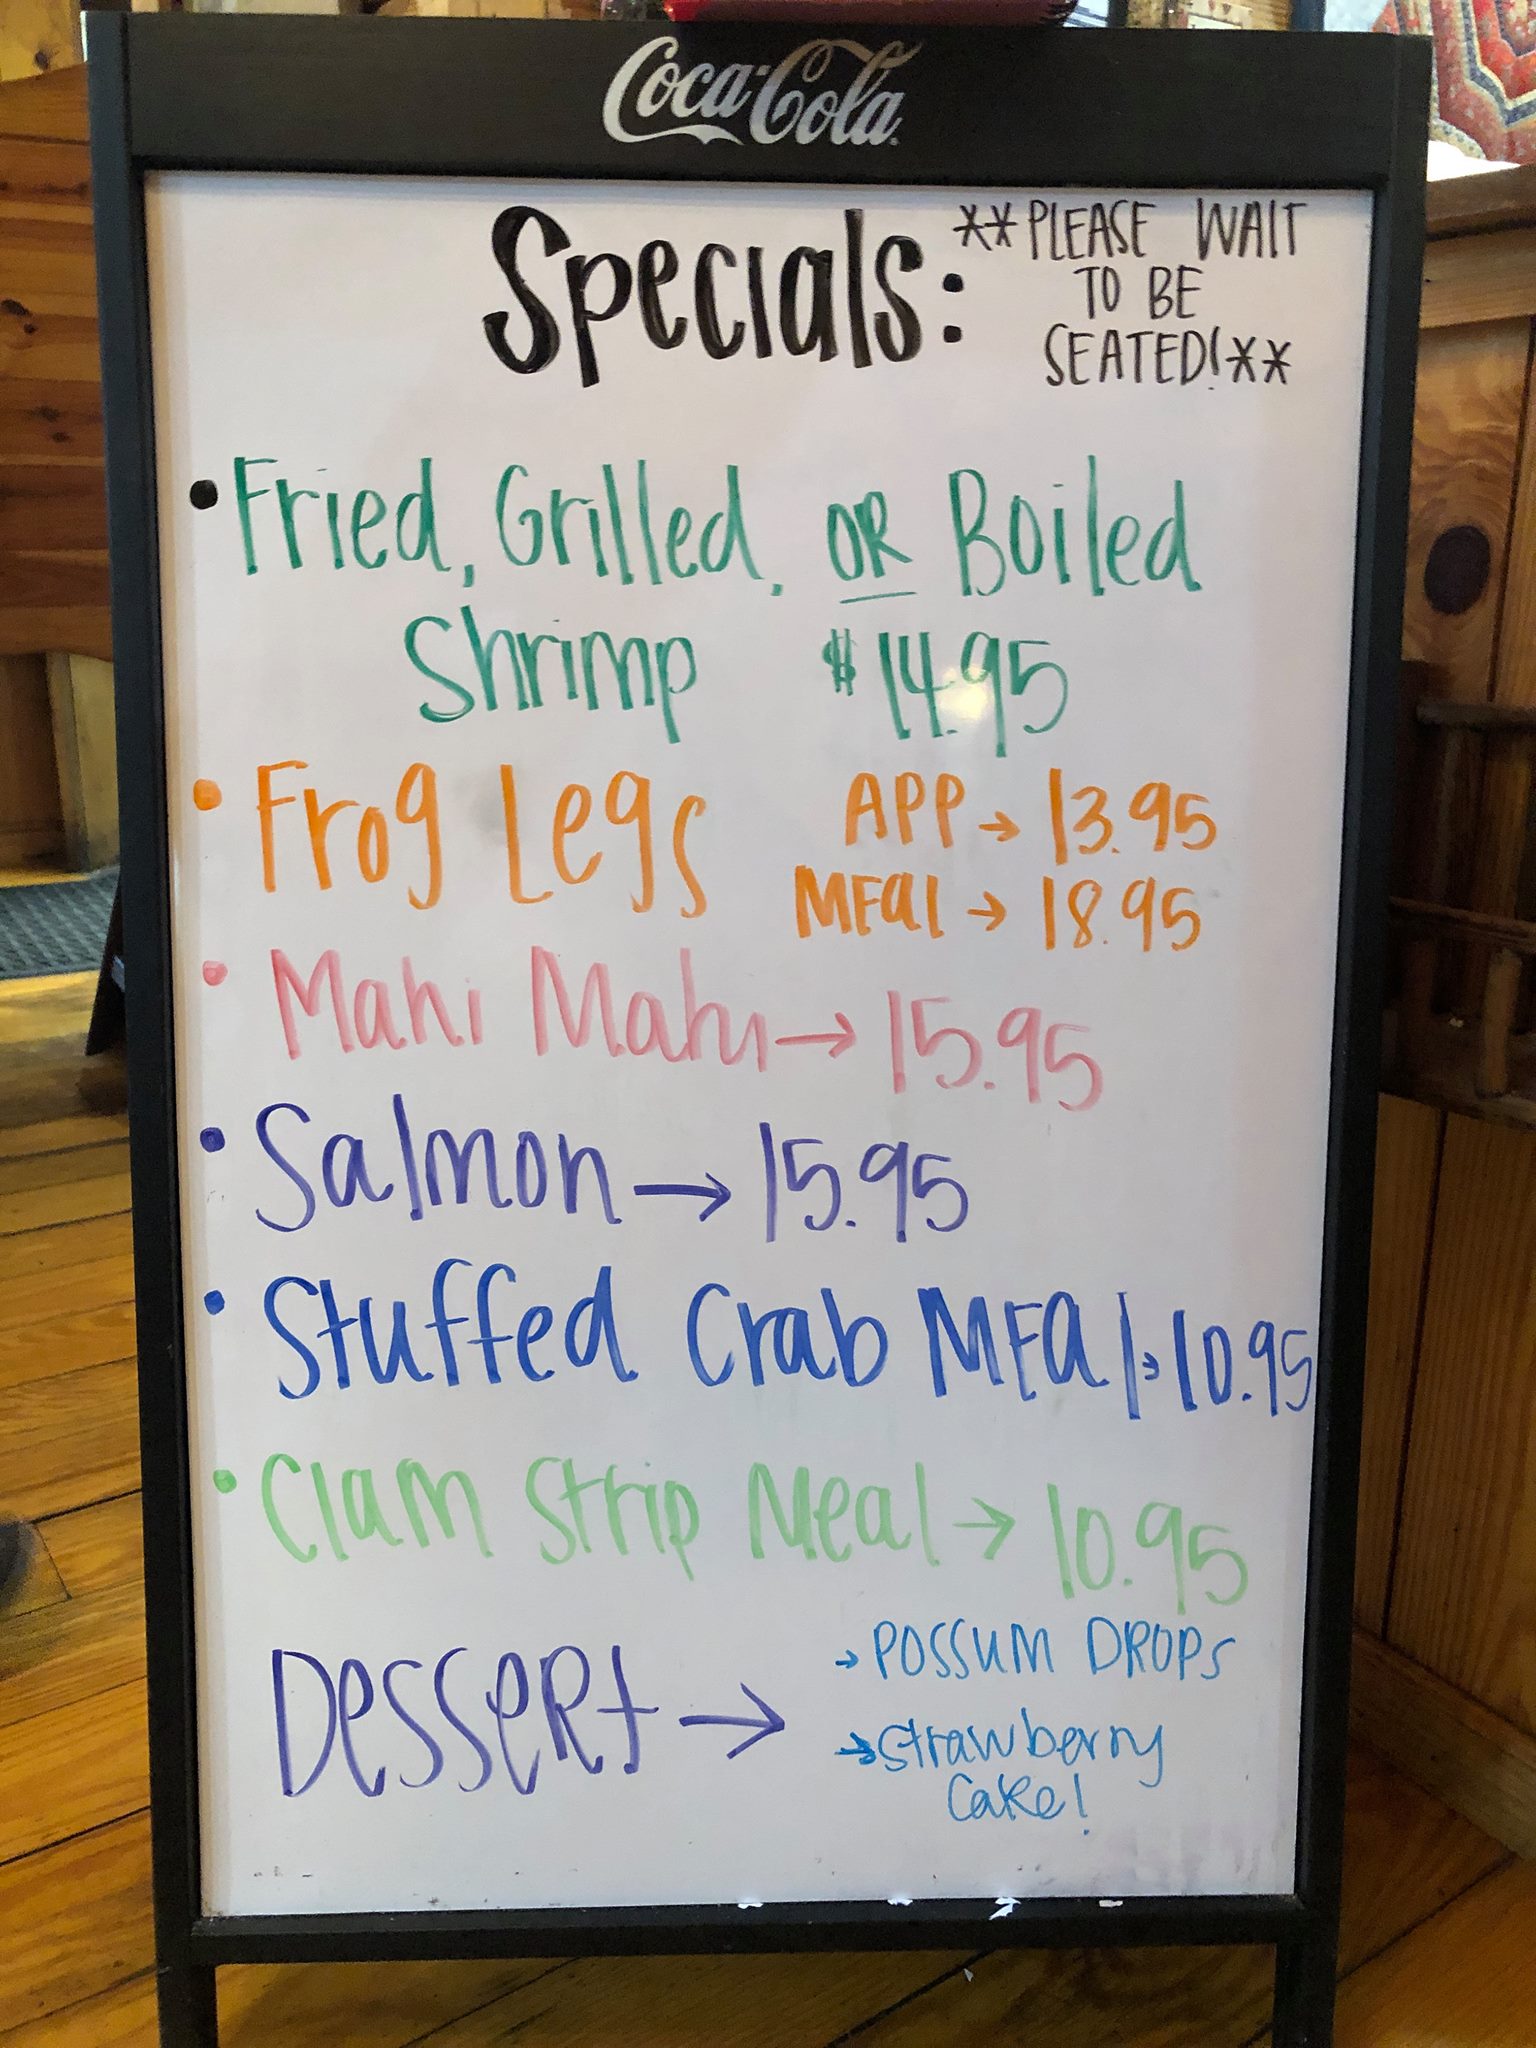 Coca-Cola
Specials:
**PLEASE WAIT
TO BE
SEATED!**
• Fried, Grilled, OR Boiled
Shrimp $14.95
• Frog Legs APP → 13.95
MEal → 18.95
• Mahi Mahi → 15.95
• Salmon → 15.95
• Stuffed Crab MEal → 10.95
• Clam Strip Meal → 10.95
DesseRt → → POSSUM DROPS
→ Strawberry
Cake!